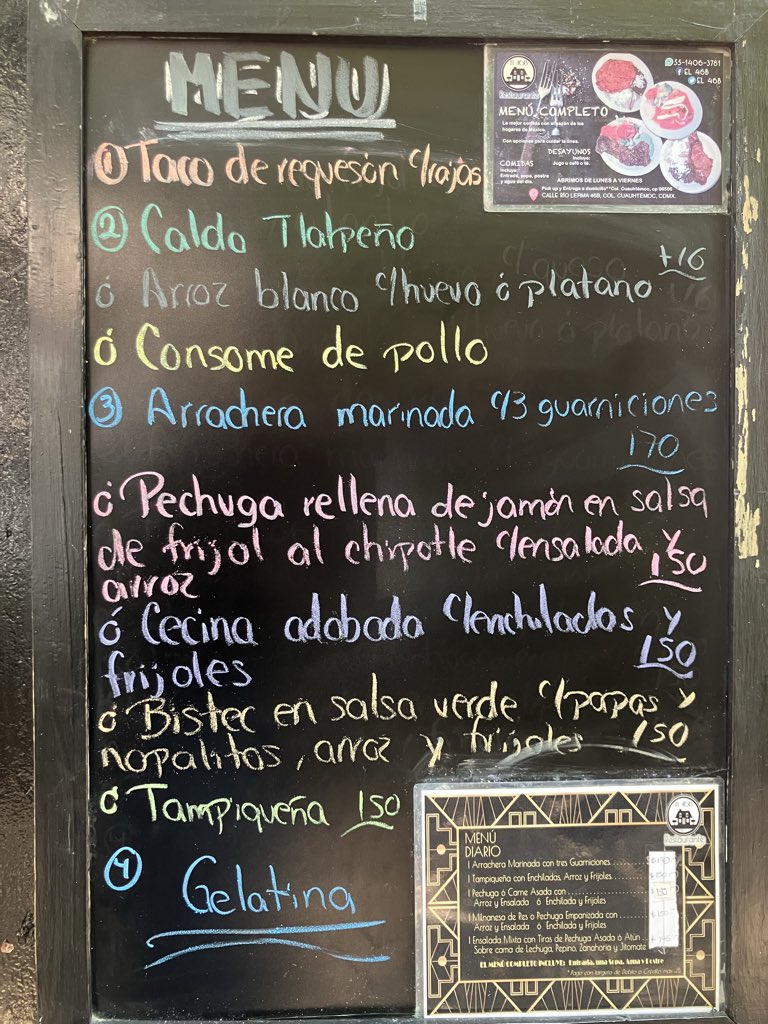 MENU
① Taco de requesón c/rajas
② Caldo Tlalpeño
ó Arroz blanco c/huevo ó platano +16
ó Consome de pollo
③ Arrachera marinada c/3 guarniciones
170
ó Pechuga rellena de jamón en salsa
de frijol al chipotle c/ensalada y
arroz 150
ó Cecina adobada c/enchiladas y
frijoles 150
ó Bistec en salsa verde c/papas y
nopalitos, arroz y frijoles 150
ó Tampiqueña 150
④ Gelatina
Restaurante
55-1406-3781
EL 46B
EL 46B
MENÚ COMPLETO
La mejor comida con el sazón de los
hogares de México.
Con opciones para cuidar la línea.
DESAYUNOS
Incluye:
Jugo o café o té.
COMIDAS
Incluye:
Entrada, sopa, postre
y agua del día.
ABRIMOS DE LUNES A VIERNES
Pick up y Entrega a domicilio**Col. Cuauhtémoc, cp 06500
CALLE RÍO LERMA 46B, COL. CUAUHTÉMOC, CDMX.
Restaurante
MENÚ
DIARIO
1 Arrachera Marinada con tres Guarniciones
1 Tampiqueña con Enchiladas, Arroz y Frijoles
1 Pechuga ó Carne Asada con
Arroz y Ensalada ó Enchilada y Frijoles
1 Milanesa de Res ó Pechuga Empanizada con
Arroz y Ensalada ó Enchilada y Frijoles
1 Ensalada Mixta con Tiras de Pechuga Asada ó Atún
Sobre cama de Lechuga, Pepino, Zanahoria y Jitomate
EL MENÚ COMPLETO INCLUYE: Entrada, una Sopa, Agua y Postre